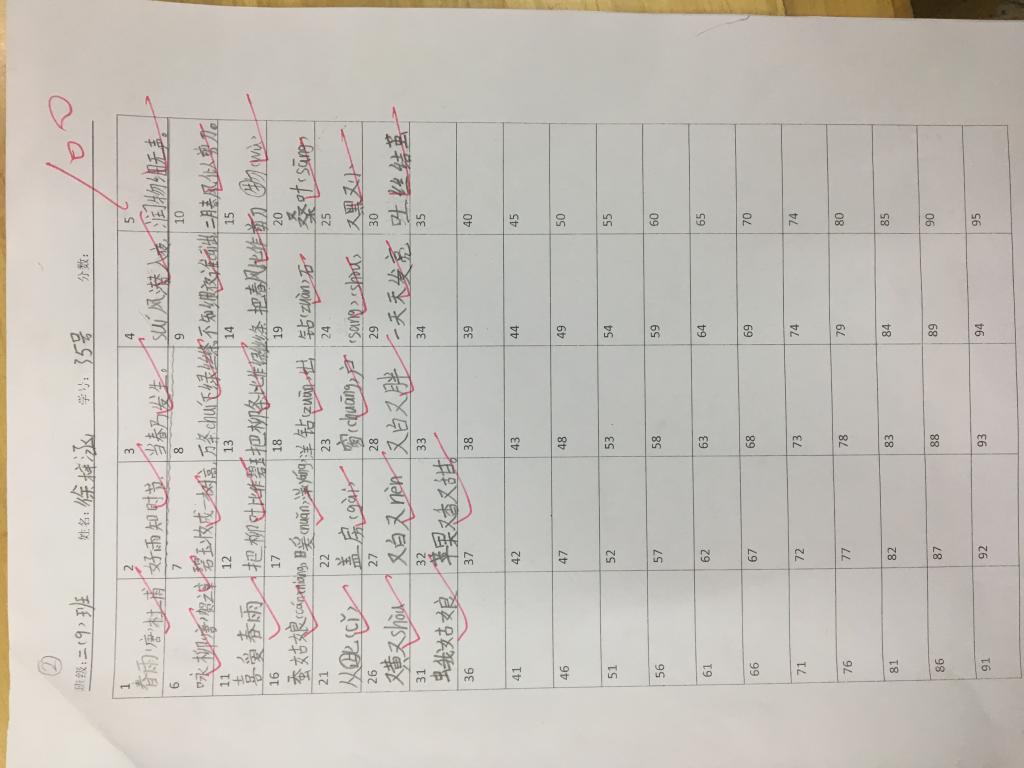 ②
班级:二(9)班 姓名:徐梓涵 学号:35号 分数:
100
1 2 3 4 5
春雨(唐)杜甫 好雨知时节, 当春乃发生。 suí风潜入夜, 润物细无声。
6 7 8 9 10
咏柳(唐)贺之章 碧玉妆成一树高, 万条chuí下绿丝绦 不知细夜谁cái出 二月春风似剪刀。
11 12 13 14 15
喜爱春雨 把柳叶比作碧玉 把柳条比作绿丝绦 把春风比作剪刀 物(wù)
16 17 18 19 20
蚕姑娘(cán)(niáng) 暖(nuǎn)洋(yáng)洋 钻(zuān)出 钻(zuàn)石 桑叶(sāng)
21 22 23 24 25
从此(cǐ) 盖房(gài) 窗(chuāng)户 (sāng)(shòu) 又黑又小
26 27 28 29 30
又黄又shòu 又白又nèn 又白又胖 一天天发亮 吐丝结茧
31 32 33 34 35
蛾姑娘 苹果又香又甜。
36 37 38 39 40
41 42 43 44 45
46 47 48 49 50
51 52 53 54 55
56 57 58 59 60
61 62 63 64 65
66 67 68 69 70
71 72 73 74 74
76 77 78 79 80
81 82 83 84 85
86 87 88 89 90
91 92 93 94 95